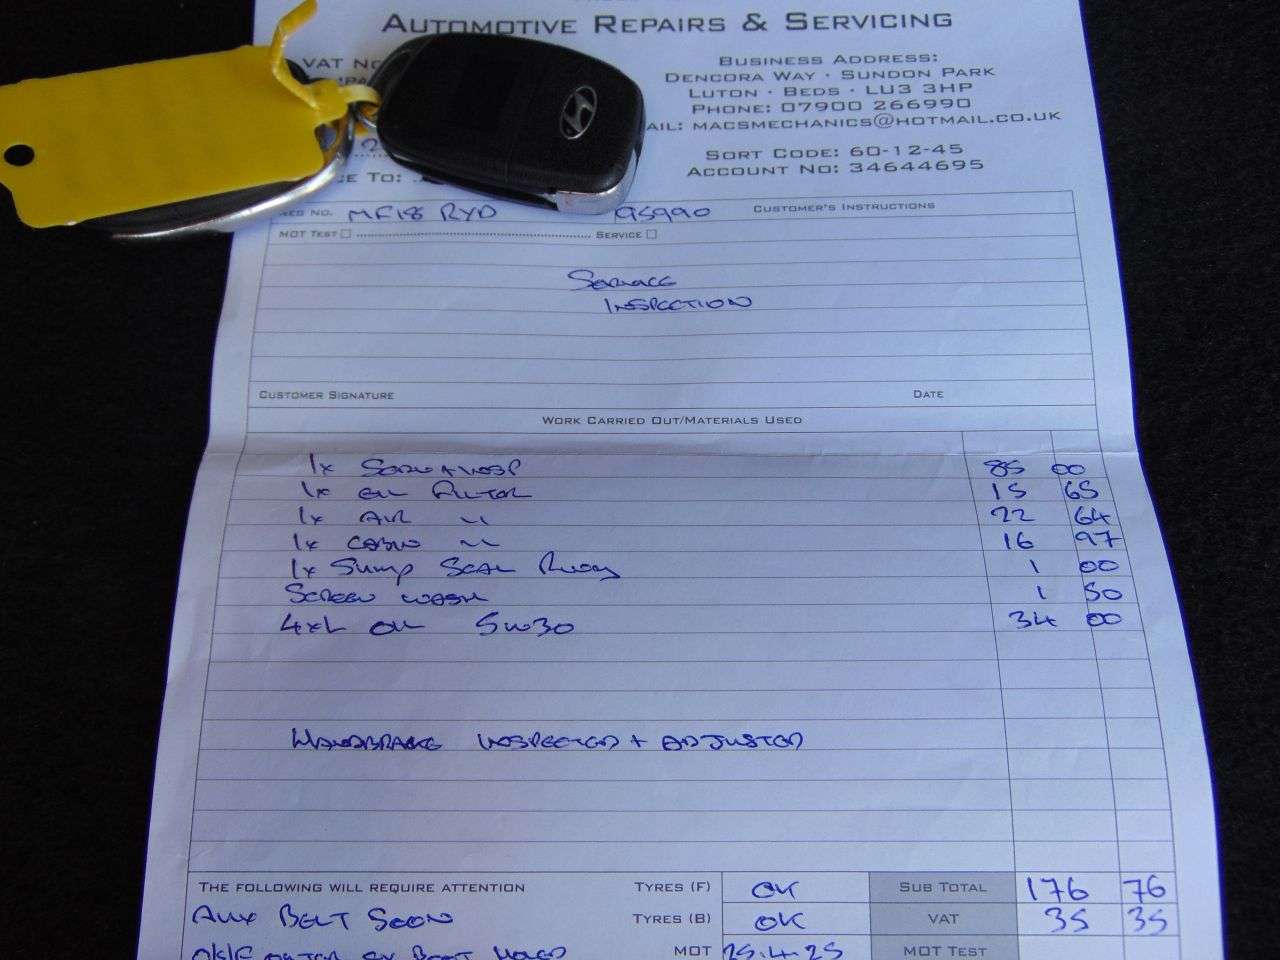 AUTOMOTIVE REPAIRS & SERVICING
VAT NO
BUSINESS ADDRESS:
DENCORA WAY · SUNDON PARK
LUTON · BEDS · LU3 3HP
PHONE: 07900 266990
AIL: MACSMECHANICS@HOTMAIL.CO.UK
SORT CODE: 60-12-45
ACCOUNT NO: 34644695
CE TO:
REG NO. MF18 RYD 95990 CUSTOMER'S INSTRUCTIONS
MOT TEST SERVICE
SERVICE
INSPECTION
CUSTOMER SIGNATURE DATE
WORK CARRIED OUT/MATERIALS USED
1x SERV + INSP 85 00
1x OIL FILTER 15 65
1x AIR " 22 64
1x CABIN " 16 97
1x SUMP SEAL 1 00
SCREEN WASH 1 50
4xL OIL 5W30 34 00
HANDBRAKE INSPECTED + ADJUSTED
THE FOLLOWING WILL REQUIRE ATTENTION TYRES (F) OK SUB TOTAL 176 76
AUX BELT SOON TYRES (B) OK VAT 35 35
O/S/F OUTER CV BOOT MOT 25.4.25 MOT TEST